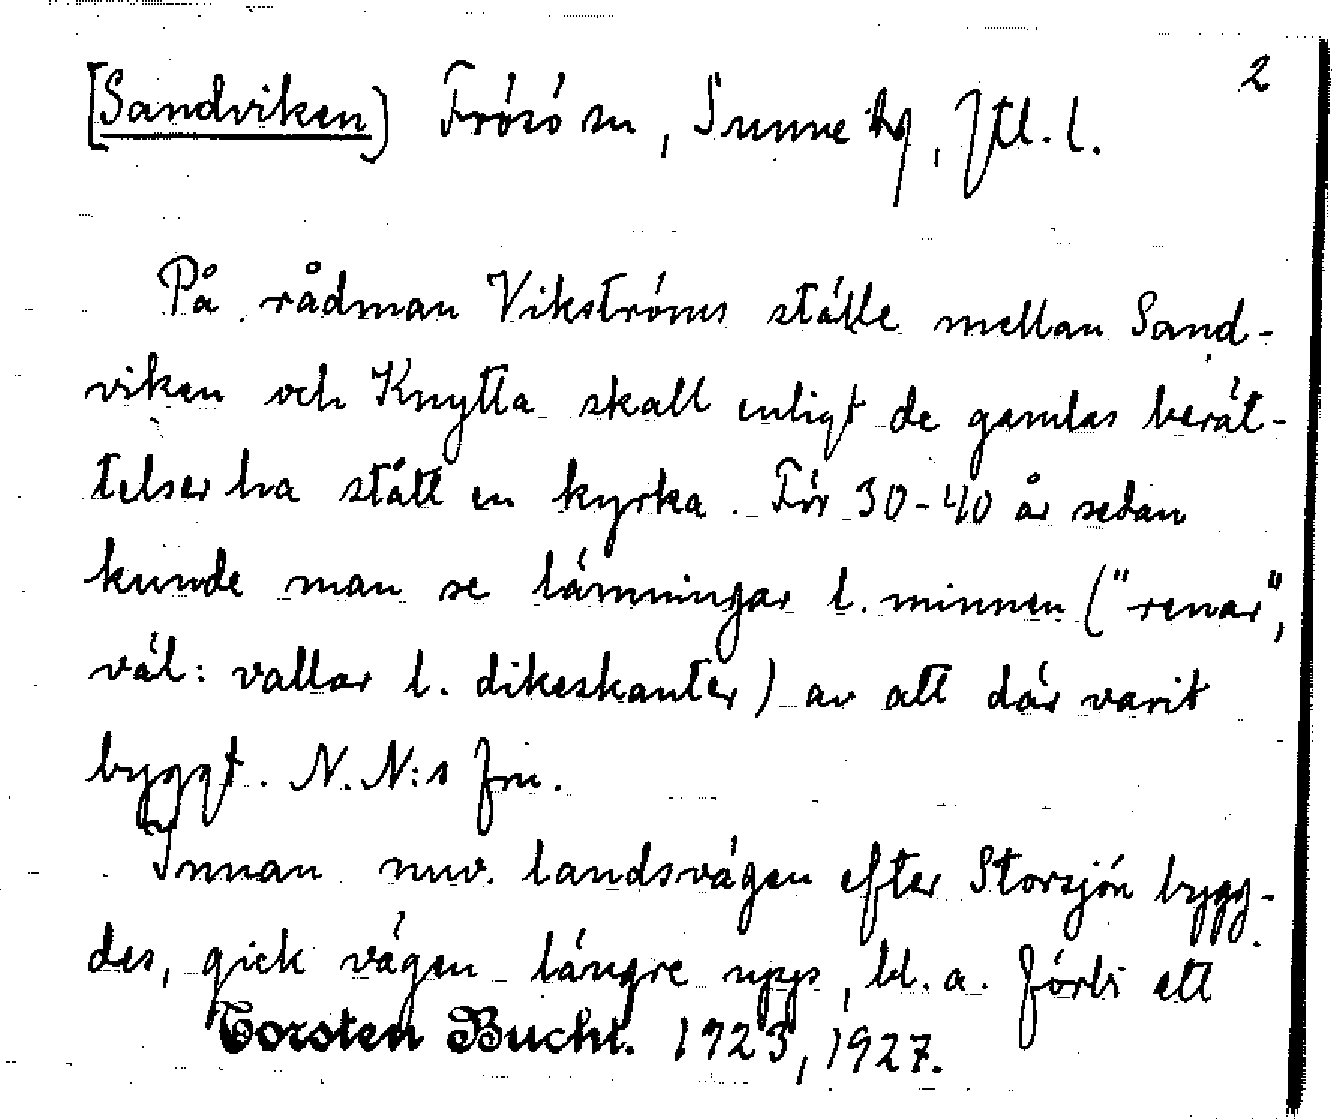 2
[Sandviken] Frösö sn, Sunne hg, Jtl. l.
På rådman Vikströms ställe mellan Sand-
viken och Knytta skall enligt de gamlas berät-
telser ha stått en kyrka. För 30-40 år sedan
kunde man se lämningar l. minnen ("renar",
väl: vallar l. dikeskanter) av att där varit
byggt. N.N:s fru.
Innan nuv. landsvägen efter Storsjön bygg-
des, gick vägen längre upp, bl. a. förbi ett
Torsten Bucht. 1923, 1927.